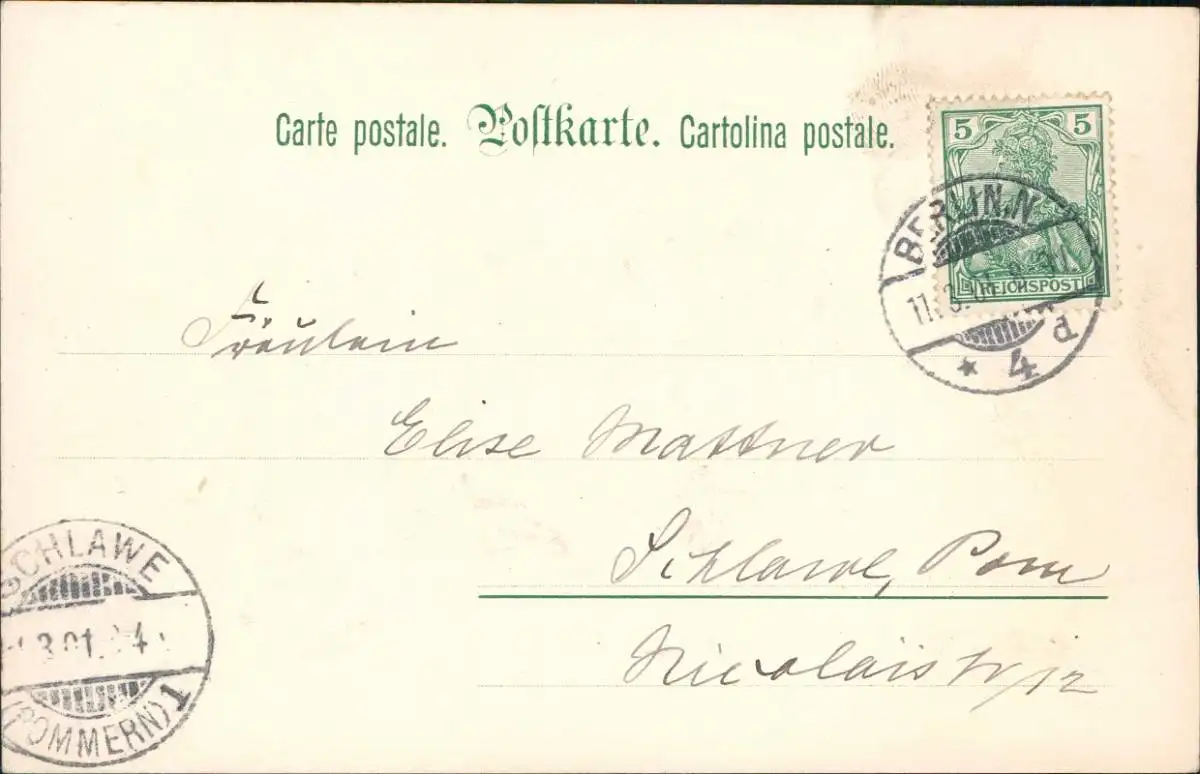 Carte postale. Postkarte. Cartolina postale.
5 5
REICHSPOST
BERLIN.N
11.3.01. 8-9
* 4 d
Fräulein
Elise Mattner
Schlawe, Pom
Nicolaistr 12
SCHLAWE
3.01. 4
(POMMERN) 1